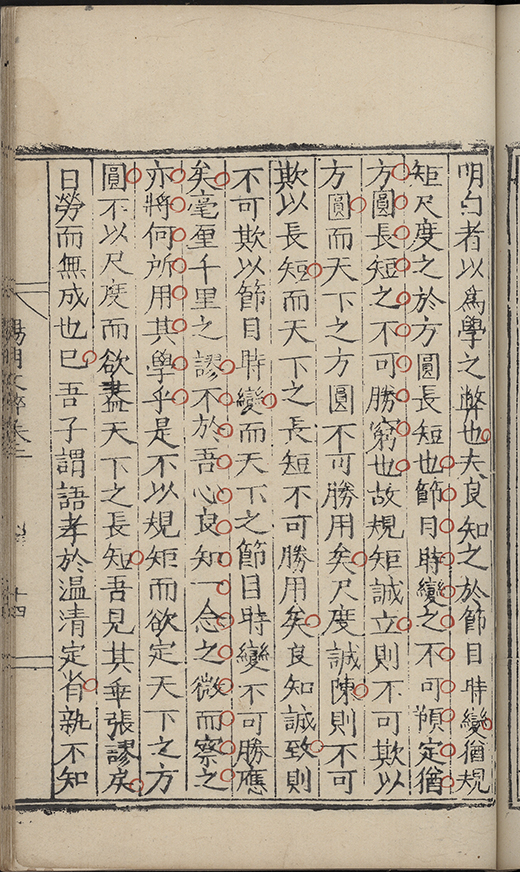 明白者以爲學之弊也夫良知之於節目時變猶規
矩尺度之於方圓長短也節目時變之不可預定猶
方圓長短之不可勝窮也故規矩誠立則不可欺以
方圓而天下之方圓不可勝用矣尺度誠陳則不可
欺以長短而天下之長短不可勝用矣良知誠致則
不可欺以節目時變而天下之節目時變不可勝應
矣毫厘千里之謬不於吾心良知一念之微而察之
亦將何所用其學乎是不以規矩而欲定天下之方
圓不以尺度而欲盡天下之長短吾見其乖張謬戾
日勞而無成也巳吾子謂語孝於温清定省孰不知
陽明文粹卷二
十四